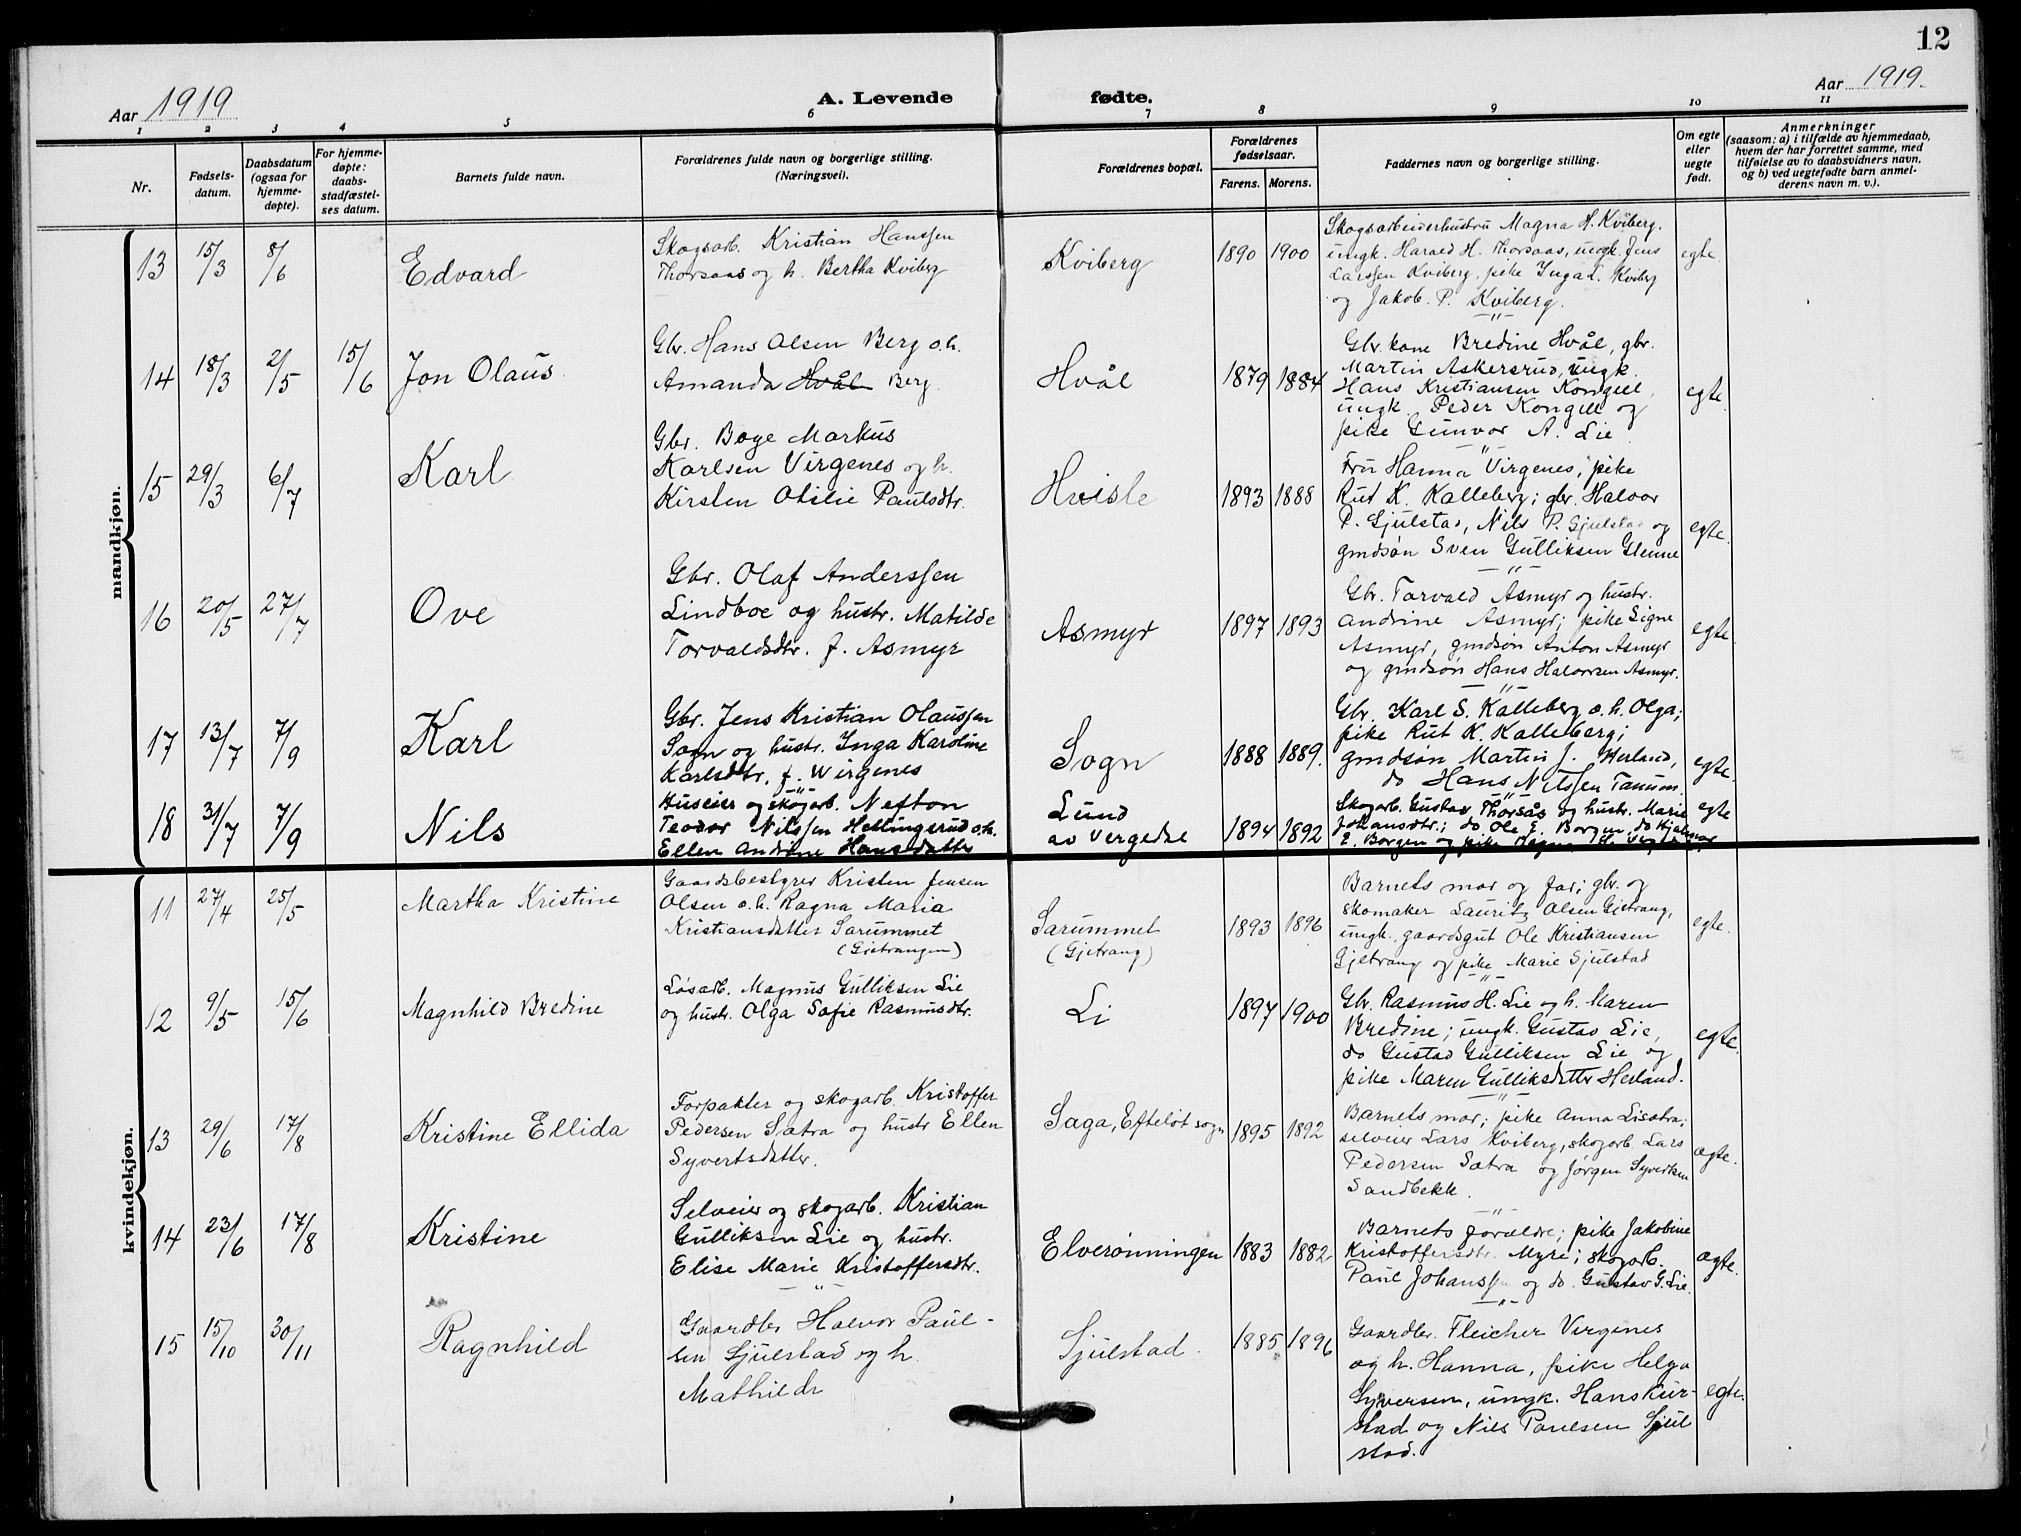 12
Aar 1919
A. Levende fødte.
Aar 1919.
1 2 3 4 5 6 7 8 9 10 11
Nr.
Fødsels-
datum.
Daabsdatum
(ogsaa for
hjemme-
døpte).
For hjemme-
døpte:
daabs-
stadfæstel-
ses datum.
Barnets fulde navn.
Forældrenes fulde navn og borgerlige stilling.
(Næringsvei).
Forældrenes bopæl.
Forældrenes
fødselsaar.
Farens. Morens.
Faddernes navn og borgerlige stilling.
Om egte
eller
uegte
født.
Anmerkninger
(saasom: a) i tilfælde av hjemmedaab,
hvem der har forrettet samme, med
tilføielse av to daabsvidners navn,
og b) ved uegtefødte barn anmel-
derens navn m. v.).
mandkjøn.
13 15/3 8/6 Edvard
Skogsarb. Kristian Hanssen
Thorsaas og h. Bertha Kviberg
Kviberg 1890 1900
Skogsarbeiderhustru Magna H. Kviberg,
ungk. Harald H. Thorsaas, ungk. Jens
Larssen Kviberg, pike Inga L. Kviberg
og Jakob P. Kviberg.
egte
14 18/3 2/5 15/6 Jon Olaus
Gbr. Hans Olsen Berg o.h.
Amanda Hvål Berg.
Hvål 1879 1884
Gbr. kone Bredine Hvål, gbr.
Martin Askersrud, ungk.
Hans Kristiansen Kongell,
ungk. Peder Kongell og
pike Gunvor A. Lie
egte
15 29/3 6/7 Karl
Gbr. Boye Markus
Karlsen Virgenes og h.
Kirsten Otilie Paulsdtr.
Hvisle 1893 1888
Fru Hanna Virgenes, pike
Rut K. Kalleberg; gbr. Halvor
P. Sjulstad, Nils P. Gjulstad og
gmdsøn Sven Gulliksen Glenne
egte.
16 20/5 27/7 Ove
Gbr. Olaf Anderssen
Lindboe og hustr. Matilde
Torvaldsdtr. f. Asmyr
Asmyr 1897 1893
Gbr. Torvald Asmyr og hustr.
Andrine Asmyr; pike Signe
Asmyr, gmdsøn Anton Asmyr
og gmdsøn Hans Halvorsen Asmyr.
egte
17 13/7 7/9 Karl
Gbr. Jens Kristian Olaussen
Sogn og hustr. Inga Karoline
Karlsdtr. f. Wirgenes
Sogn 1888 1889.
Gbr. Karl S. Kalleberg o.h. Olga;
pike Rut K. Kalleberg;
gmdsøn Martin J. Herland,
do Hans Nilssen Tanum.
egte
18 31/7 7/9 Nils
Huseier og skogarb. Nefton
Teodor Nilssen Hellingsrud o.h.
Ellen Andrine Hansdatter
Lund
av Vergedse 1894 1892
Skogarb. Gustav Thorsås og hustr. Marie
Johansdtr.; do Ole E. Borgen, do Hjalmar
E. Borgen og pike
egte
kvindekjøn.
11 27/4 25/5 Martha Kristine
Gaardsbestyrer Kristen Jensen
Olsen o.h. Ragna Maria
Kristiansdatter Sarummet
(Gjetrangen)
Sarummet
(Gjetrang)
1893 1896
Barnets mor og far; gbr. og
skomaker Lauritz Olsen Gjetrang,
ungk., gaardsgut Ole Kristiansen
Gjetrang og pike Marie Sjulstad
egte.
12 9/5 15/6 Magnhild Bredine
Løsarb. Magnus Gulliksen Lie
og hustr. Olga Sofie Rasmusdtr.
Li 1897 1900
Gbr. Rasmus H. Lie og h. Maren
Bredine; ungk. Gustav Lie,
do Gustav Gulliksen Lie og
pike Maren Gulliksdatter Herland.
egte.
13 29/6 17/8 Kristine Ellida
Forpakter og skogarb. Kristoffer
Pedersen Sætra og hustr Ellen
Syvertsdatter.
Saga, Efteløt sogn 1895 1892
Barnets mor; pike Anna Lisætra;
selveier Lars Kviberg, skogarb. Lars
Pedersen Sætra og Jørgen Syvertsen
Sandbekk.
ægte.
14 23/6 17/8 Kristine
Selveier og skogarb. Kristian
Gulliksen Lie og hustr.
Elise Marie Kristoffersdtr.
Elverønningen 1883 1882
Barnets forældre; pike Jakobine
Kristoffersdtr. Myre; skogarb.
Paul Johanssen og do. Gustav G. Lie
ægte.
15 15/10 30/11 Ragnhild
Gaardbr Halvor Paul-
sen Sjulstad og h.
Mathilde
Sjulstad. 1885 1896
Gaardbr. Fleicher Virgenes
og h. Hanna, pike Helga
Syversen, ungk. Hans Kur-
stad og Nils Paulsen Sjul
stad.
egte.